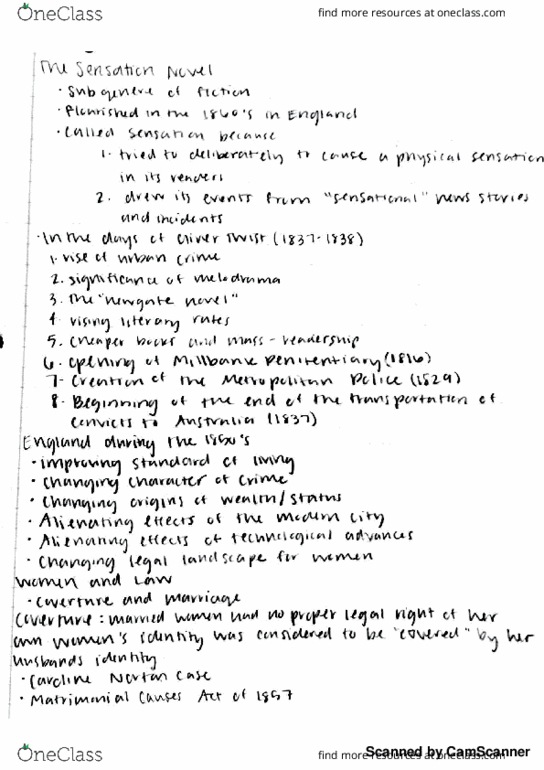 OneClass
find more resources at oneclass.com
The Sensation Novel
· Subgenere of fiction
· Flourished in the 1860's in England
· Called sensation because
1. tried to deliberately to cause a physical sensation
in its readers
2. drew its events from "sensational" news stories
and incidents
· In the days of Oliver Twist (1837-1838)
1. rise of urban crime
2. significance of melodrama
3. The "newgate novel"
4. rising literary rates
5. Cheaper books and mass-readership
6. Opening of Millbank Penitentiary (1816)
7. Creation of the Metropolitan Police (1829)
8. Beginning of the end of the transportation of
convicts to Australia (1837)
England during the 1860's
· improving standard of living
· Changing character of crime
· Changing origins of wealth/status
· Alienating effects of the modern city
· Alienating effects of technological advances
· Changing legal landscape for women
Women and Law
· Coverture and marriage
Coverture: married women had no proper legal right of her
own women's identity was considered to be "covered" by her
husbands identity
· Caroline Norton Case
· Matrimonial Causes Act of 1857
OneClass
find more resources at oneclass.com
Scanned by CamScanner